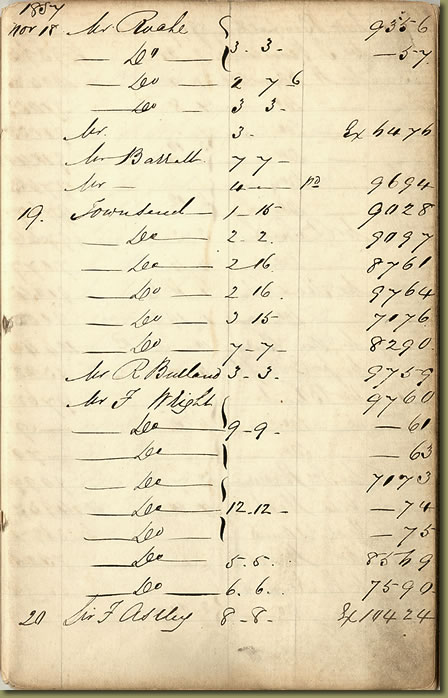 1857
Nov 18 Mr Roake 9356
Do 3. 3. — 57
Do 2 7 6
Do 3 3 -
Mr. 3 - Ex 6476
Mr Barratt 7 7 -
Mr — 4 — pd 9694
19. Townsend 1 - 15 9028
Do 2 - 2. 9097
Do 2 16 8761
Do 2 16. 9764
Do 3 15 7176
Do 7 - 7 - 8290
Mr R Bulland 3 - 3. 9759
Mr F Wright 9760
Do 9 - 9 - — 61
Do — 63
Do 7173
Do 12.12 - — 74
Do — 75
Do 5. 5. 8569
Do 6. 6. 7590
20 Sir F Astley 8 - 8 - Ex 10424